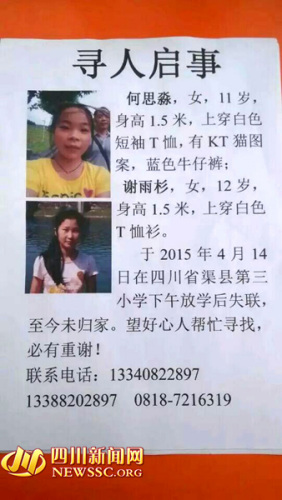 寻人启事
何思淼，女，11岁，
身高1.5米，上穿白色
短袖T恤，有KT猫图
案，蓝色牛仔裤；
谢雨杉，女，12岁，
身高1.5米，上穿白色
T恤衫。
于2015年4月14
日在四川省渠县第三
小学下午放学后失联，
至今未归家。望好心人帮忙寻找，
必有重谢！
联系电话：13340822897
13388202897 0818-7216319
四川新闻网
NEWSSC.ORG